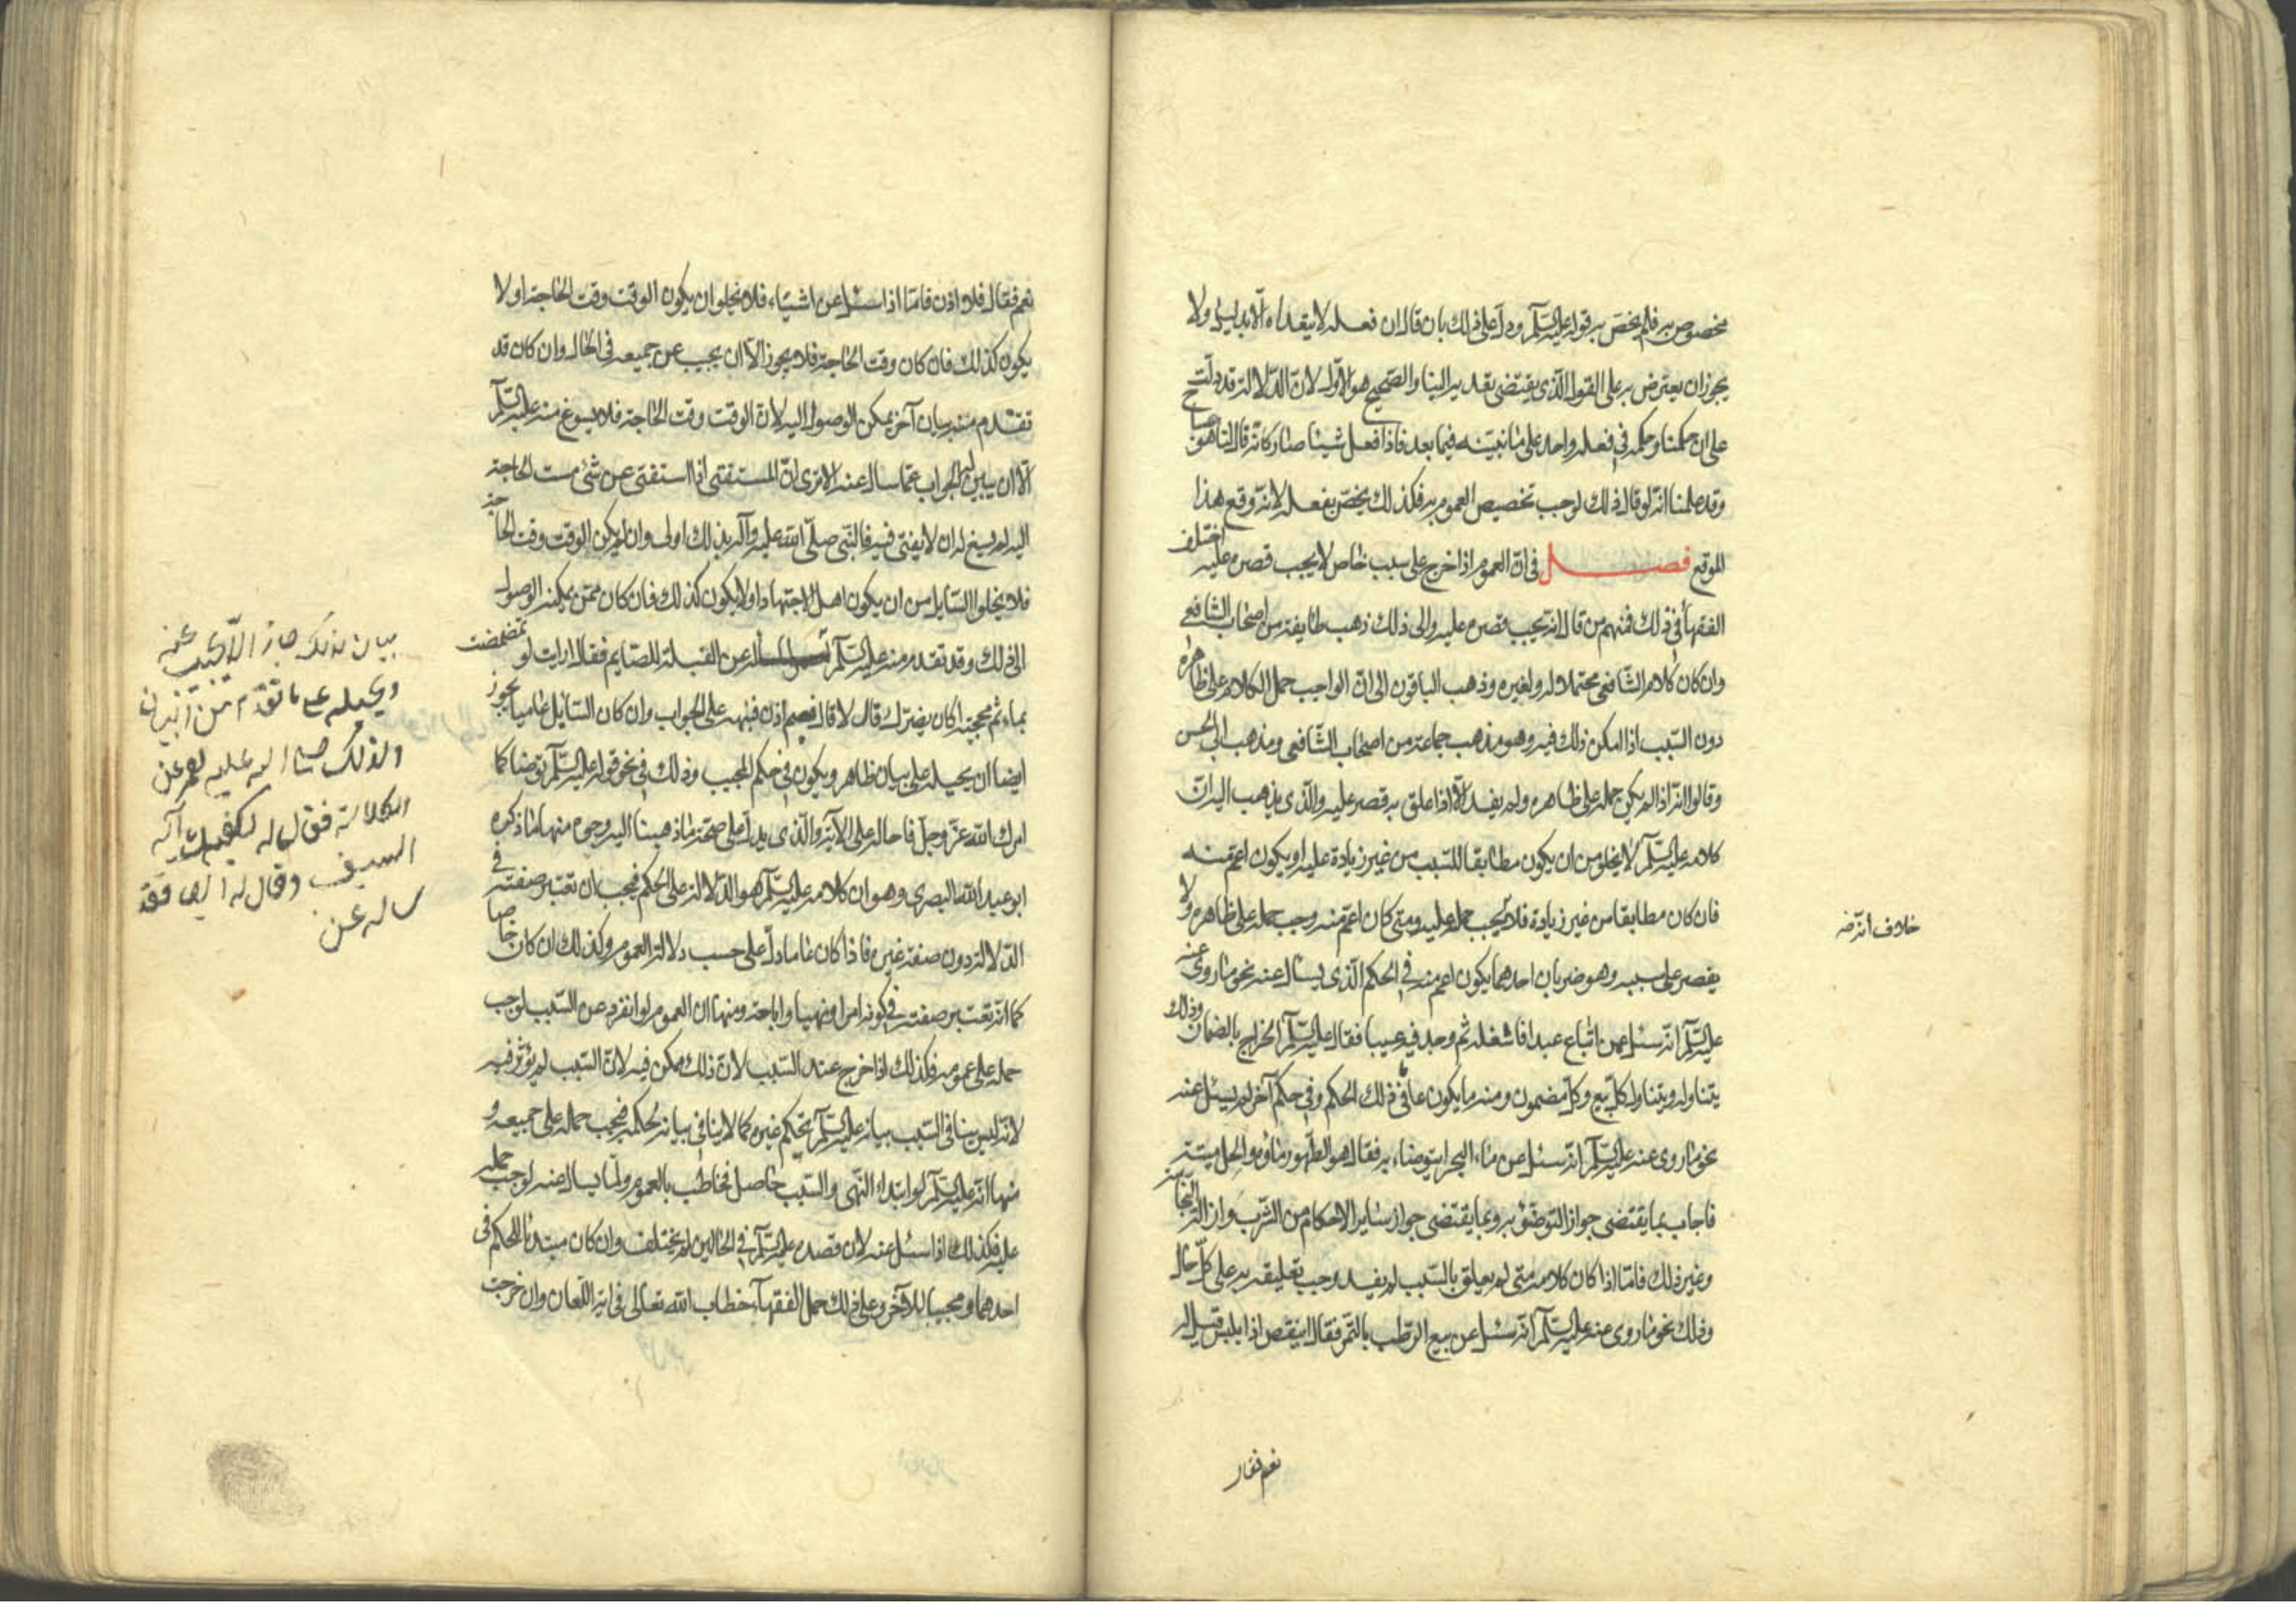 مخصوص به فلم يخص به قوله عليه السّلم ودلّ على ذلك بان قال ان فعله لا يتعداه الّا بدليل ولا
يجوز ان يعترض به على القول الّذى يقتضى تعديه الينا والصّحيح هو الاوّل لانّ الدّلالة قد دلّت
على ان حكمنا وحكمه فى فعله واحد على ما نبيّنه فيما بعد فاذا فعل شيئا صار كانّه قال لنا هو
وقد علمنا انّه لو قال ذلك لوجب تخصيص العموم به فكذلك يخصّ بفعله لانّه وقع هذا
الموقع فصل فى انّ العموم اذا خرج على سبب خاص لا يجب قصره عليه اختلف
الفقهآء فى ذلك فمنهم من قال انه يجب قصره عليه والى ذلك ذهب طايفة من اصحاب الشافعى
وان كان كلام الشّافعى محتملا له ولغيره وذهب الباقون الى انّ الواجب حمل الكلام على ظاهره
دون السّبب اذا امكن ذلك فيه وهو مذهب جماعة من اصحاب الشّافعى ومذهب ابى الحسن
وقالوا انّه اذا لم يكن حمله على ظاهره ولم يفد الّا اذا علق به قصر عليه والّذى يذهب اليه انّ
كلامه عليه السّلم لا يخلو من ان يكون مطابقا للسّبب من غير زيادة عليه او يكون اعمّ منه
فان كان مطابقا من غير زيادة فلا يجب حمله عليه ومتى كان اعمّ منه وجب حمله على ظاهره ولا
يقصر على سببه وهو ضربان احدهما يكون اعم منه فى الحكم الّذى يسئال عنه نحو ما روى عنه
عليه السّلم انّه سئل عمن ابتاع عبدا فاشغله ثم وجد فيه عيبا فقال عليه السّلم الخراج بالضمان وذلك
يتناوله ويتناول كلّ بيع وكلّ مضمون ومنه ما يكون عاما فى ذلك الحكم وفى حكم آخر لم يسئل عنه
نحو ما روى عنه عليه السّلم انّه سئل عن ماء البحر ايتوضاء به فقال هو الطّهور ماؤه والحل ميتته
فاجاب بما يقتضى جواز التوضّؤ به وبما يقتضى جواز ساير الاحكام من الشرب وازالة النّجاسة
وغير ذلك فامّا اذا كان كلامه متى لم يعلق بالسّبب لم يفد وجب تعليقه به على كلّ حال
وذلك نحو ما روى عنه عليه السّلم انّه سئل عن بيع الرّطب بالتّمر فقال اينقص اذا يبس قيل له
نعم فقال
نعم فقال فلا اذن فامّا اذا سئل عن اشياء فلا يخلو ان يكون الوقت وقت الحاجة او لا
يكون كذلك فان كان وقت الحاجة فلا يجوز الّا ان يجيب عن جميعه فى الحال وان كان قد
تقدّم منه بيان آخر يمكن الوصول اليه لانّ الوقت وقت الحاجة فلا يسوغ منه عليه السّلم
الّا ان يبيّن له الجواب عمّا سال عنه الا ترى انّ المستفتى اذا استفتى عن شئ مست الحاجة
اليه لم يسغ له ان لا يفتى فيه فالنّبى صلّى الله عليه وآله بذلك اولى وان لم يكن الوقت وقت الحاجة
فلا يخلوا السّايل من ان يكون اهل الاجتهاد او لا يكون كذلك فان كان ممّن يمكنه الوصول
الى ذلك وقد تقدم منه عليه السّلم عن القبلة للصّايم فقال ارايت لو تمضمضت
بماء ثم مججته اكان يضرّك قال لا قال ففيم اذن فنبهه على الجواب وان كان السّايل عاميا يجوز
ايضا ان يحيله على بيان ظاهر ويكون فى حكم المجيب وذلك فى نحو قوله عليه السّلم توضا كما
امرك الله عزّ وجلّ فاحاله على الآية والّذى يدلّ على صحّة ما ذهبنا اليه وجوه منها ما ذكره
ابو عبد الله البصرى وهو ان كلامه عليه السّلم هو الدّلالة على الحكم فيجب ان تعتبر صفته فى
الدّلالة دون صفة غيره فاذا كان عاما دلّ على حسب دلالة العموم وكذلك ان كان خاصا
كما انّه تعتبر صفته فى كونه امرا ونهيا واباحة ومنها ان العموم لو انفرد عن السّبب لوجب
حمله على عمومه فكذلك اذا خرج عند السّبب لانّ ذلك ممكن فيه لانّ السّبب لم يؤثر فيه
لانّه ليس ينافى السّبب بيانه عليه السّلم بحكم غيره كما لا ينافى بيانه لحكمه فيجب حمله على جميعه و
منها انّه عليه السّلم لو ابتداء النّهى والسّبب حاصل فخاطب بالعموم ولمّا يسال عنه لوجب حمله
عليه فكذلك اذا سئل عنه لان قصده عليه السّلم فى الحالين لم يختلف وان كان مبتدئا للحكم فى
احدهما ومجيبا للآخر وعلى ذلك حمل الفقهآء خطاب الله تعالى فى اية اللّعان وان خرجت
بيان لذلك جاز الّا يجيب عنه
ويحيله على ما تقدّم من البيان
ولذلك
الكلالة فقال له يكفيك آية
السيف وقال له
ساله عن